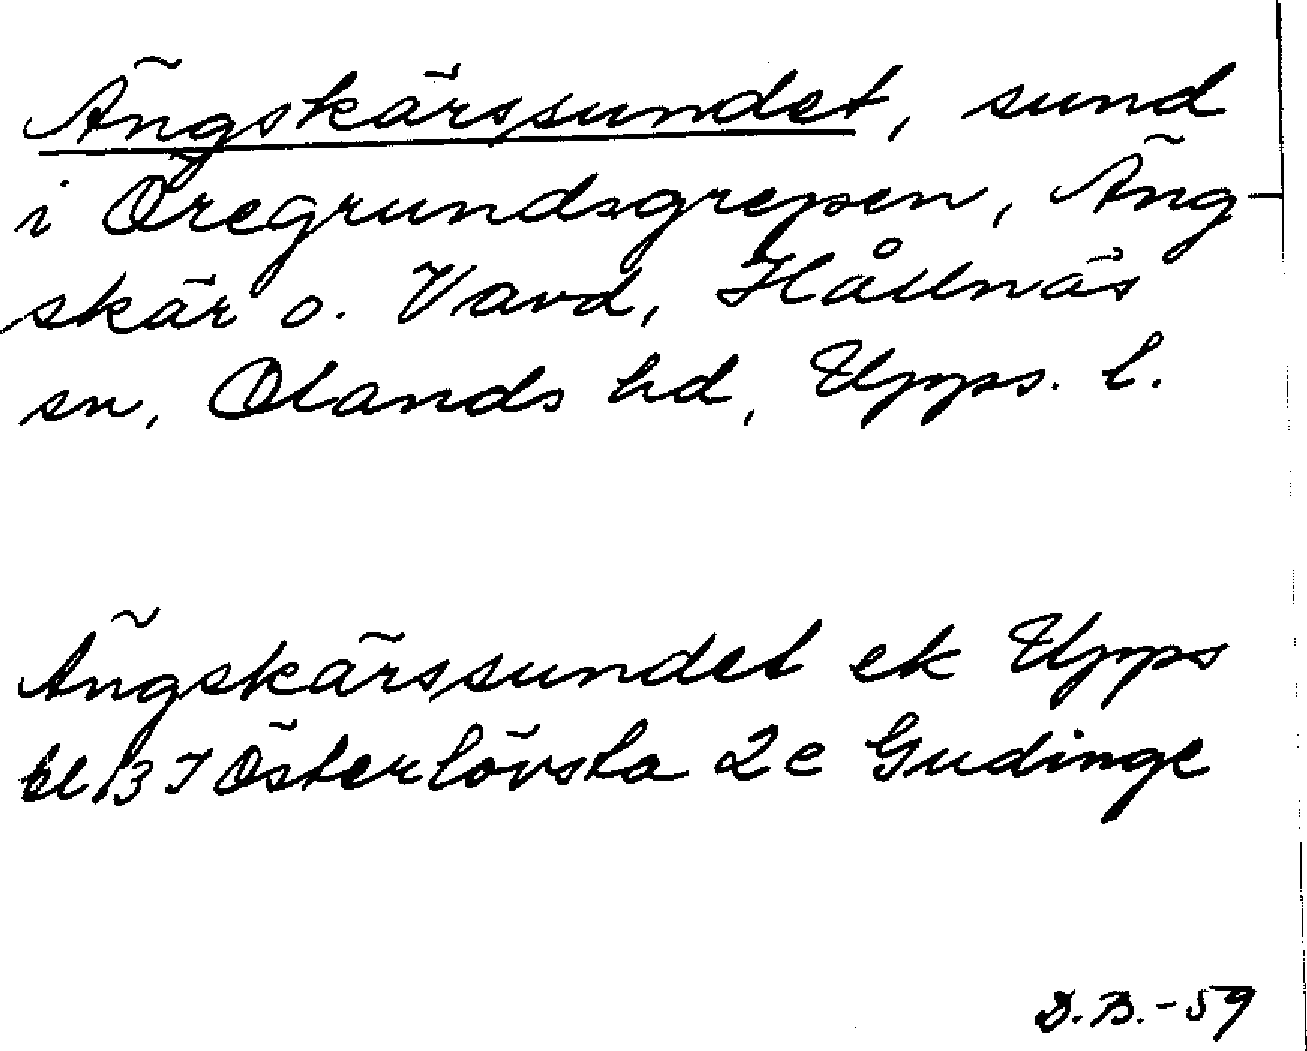 Ängskärssundet, sund
i Öregrundsgrepen, Äng-
skär o. Vavd, Hållnäs
sn, Olands hd, Upps. l.
Ängskärssundet ek Upps
bl 37 Österlövsta 2e Gudinge
D.B.-59